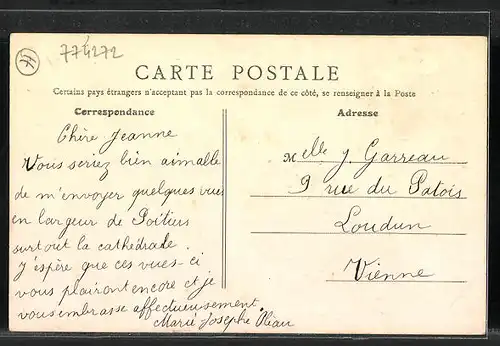 774272
CARTE POSTALE
Certains pays étrangers n'acceptant pas la correspondance de ce côté, se renseigner à la Poste
Correspondance
Chère Jeanne
Vous seriez bien aimable
de m'envoyer quelques vues
en largeur de Poitiers
surtout la cathédrale.
J'espère que ces vues-ci
vous plairont encore et je
vous embrasse affectueusement.
Marie Josephe
Adresse
Melle J. Garreau
9 rue du Palois
Loudun
Vienne